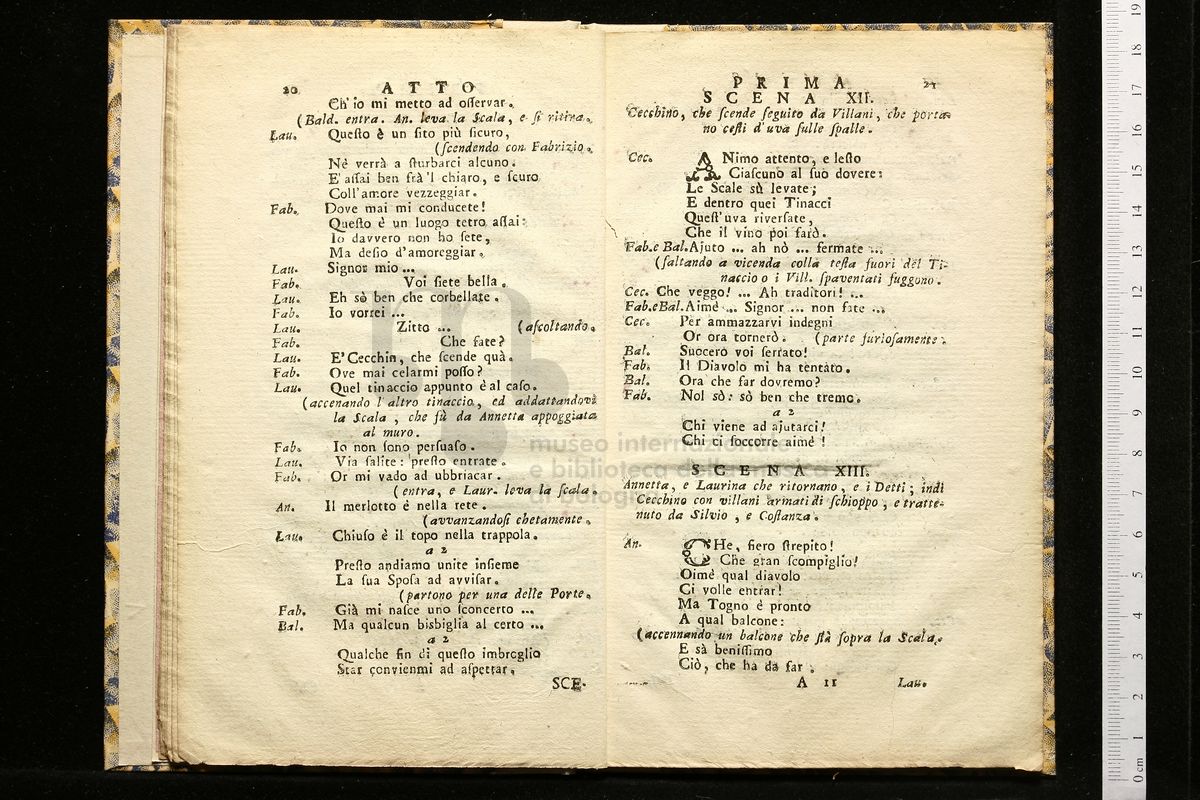 20 ATTO
Ch' io mi metto ad osservar.
(Bald. entra. An. leva la Scala, e si ritira.
Lau. Questo è un sito più sicuro,
(scendendo con Fabrizio.
Nè verrà a sturbarci alcuno.
E' assai ben frà 'l chiaro, e scuro
Coll' amore vezzeggiar.
Fab. Dove mai mi conducete!
Questo è un luogo tetro assai:
Io davvero non ho sete,
Ma desio d'amoreggiar.
Lau. Signor mio ...
Fab. Voi siete bella.
Lau. Eh sò ben che corbellate.
Fab. Io vorrei ...
Lau. Zitto ... (ascoltando.
Fab. Che fate?
Lau. E' Cecchin, che scende quà.
Fab. Ove mai celarmi posso?
Lau. Quel tinaccio appunto è al caso.
(accenando l'altro tinaccio, ed addattandovi
la Scala, che fù da Annetta appoggiata
al muro.
Fab. Io non sono persuaso.
Lau. Via salite: presto entrate.
Fab. Or mi vado ad ubbriacar.
(entra, e Laur. leva la scala.
An. Il merlotto è nella rete.
(avvanzandosi chetamente.
Lau. Chiuso è il topo nella trappola.
a 2
Presto andiamo unite insieme
La sua Sposa ad avvisar.
(partono per una delle Porte.
Fab. Già mi nasce uno sconcerto ...
Bal. Ma qualcun bisbiglia al certo ...
a 2
Qualche fin di questo imbroglio
Star convienmi ad aspettar.
SCE-
PRIMA 21
SCENA XII.
Cecchino, che scende seguito da Villani, che porta-
no cesti d'uva sulle spalle.
Cec. ANimo attento, e lesto
Ciascuno al suo dovere:
Le Scale sù levate;
E dentro quei Tinacci
Quest'uva riversate,
Che il vino poi farò.
Fab. e Bal. Ajuto ... ah nò ... fermate ...
(saltando a vicenda colla testa fuori del Ti-
naccio o i Vill. spaventati fuggono.
Cec. Che veggo! ... Ah traditori! ...
Fab. e Bal. Aimè ... Signor ... non fate ...
Cec. Per ammazzarvi indegni
Or ora tornerò. (parte furiosamente.
Bal. Succerò voi serrato!
Fab. Il Diavolo mi ha tentato.
Bal. Ora che far dovremo?
Fab. Nol sò: sò ben che tremo.
a 2
Chi viene ad ajutarci!
Chi ci soccorre aimè!
SCENA XIII.
Annetta, e Laurina che ritornano, e i Detti; indi
Cecchino con villani armati di schioppo, e tratte-
nuto da Silvio, e Costanza.
An. CHe, fiero strepito!
Che gran scompiglio!
Oimè qual diavolo
Ci volle entrar!
Ma Togno è pronto
A qual balcone:
(accennando un balcone che stà sopra la Scala.
E sà benissimo
Ciò, che ha da far.
A 11 Lau.
museo internazionale
e biblioteca della musica
di bologna